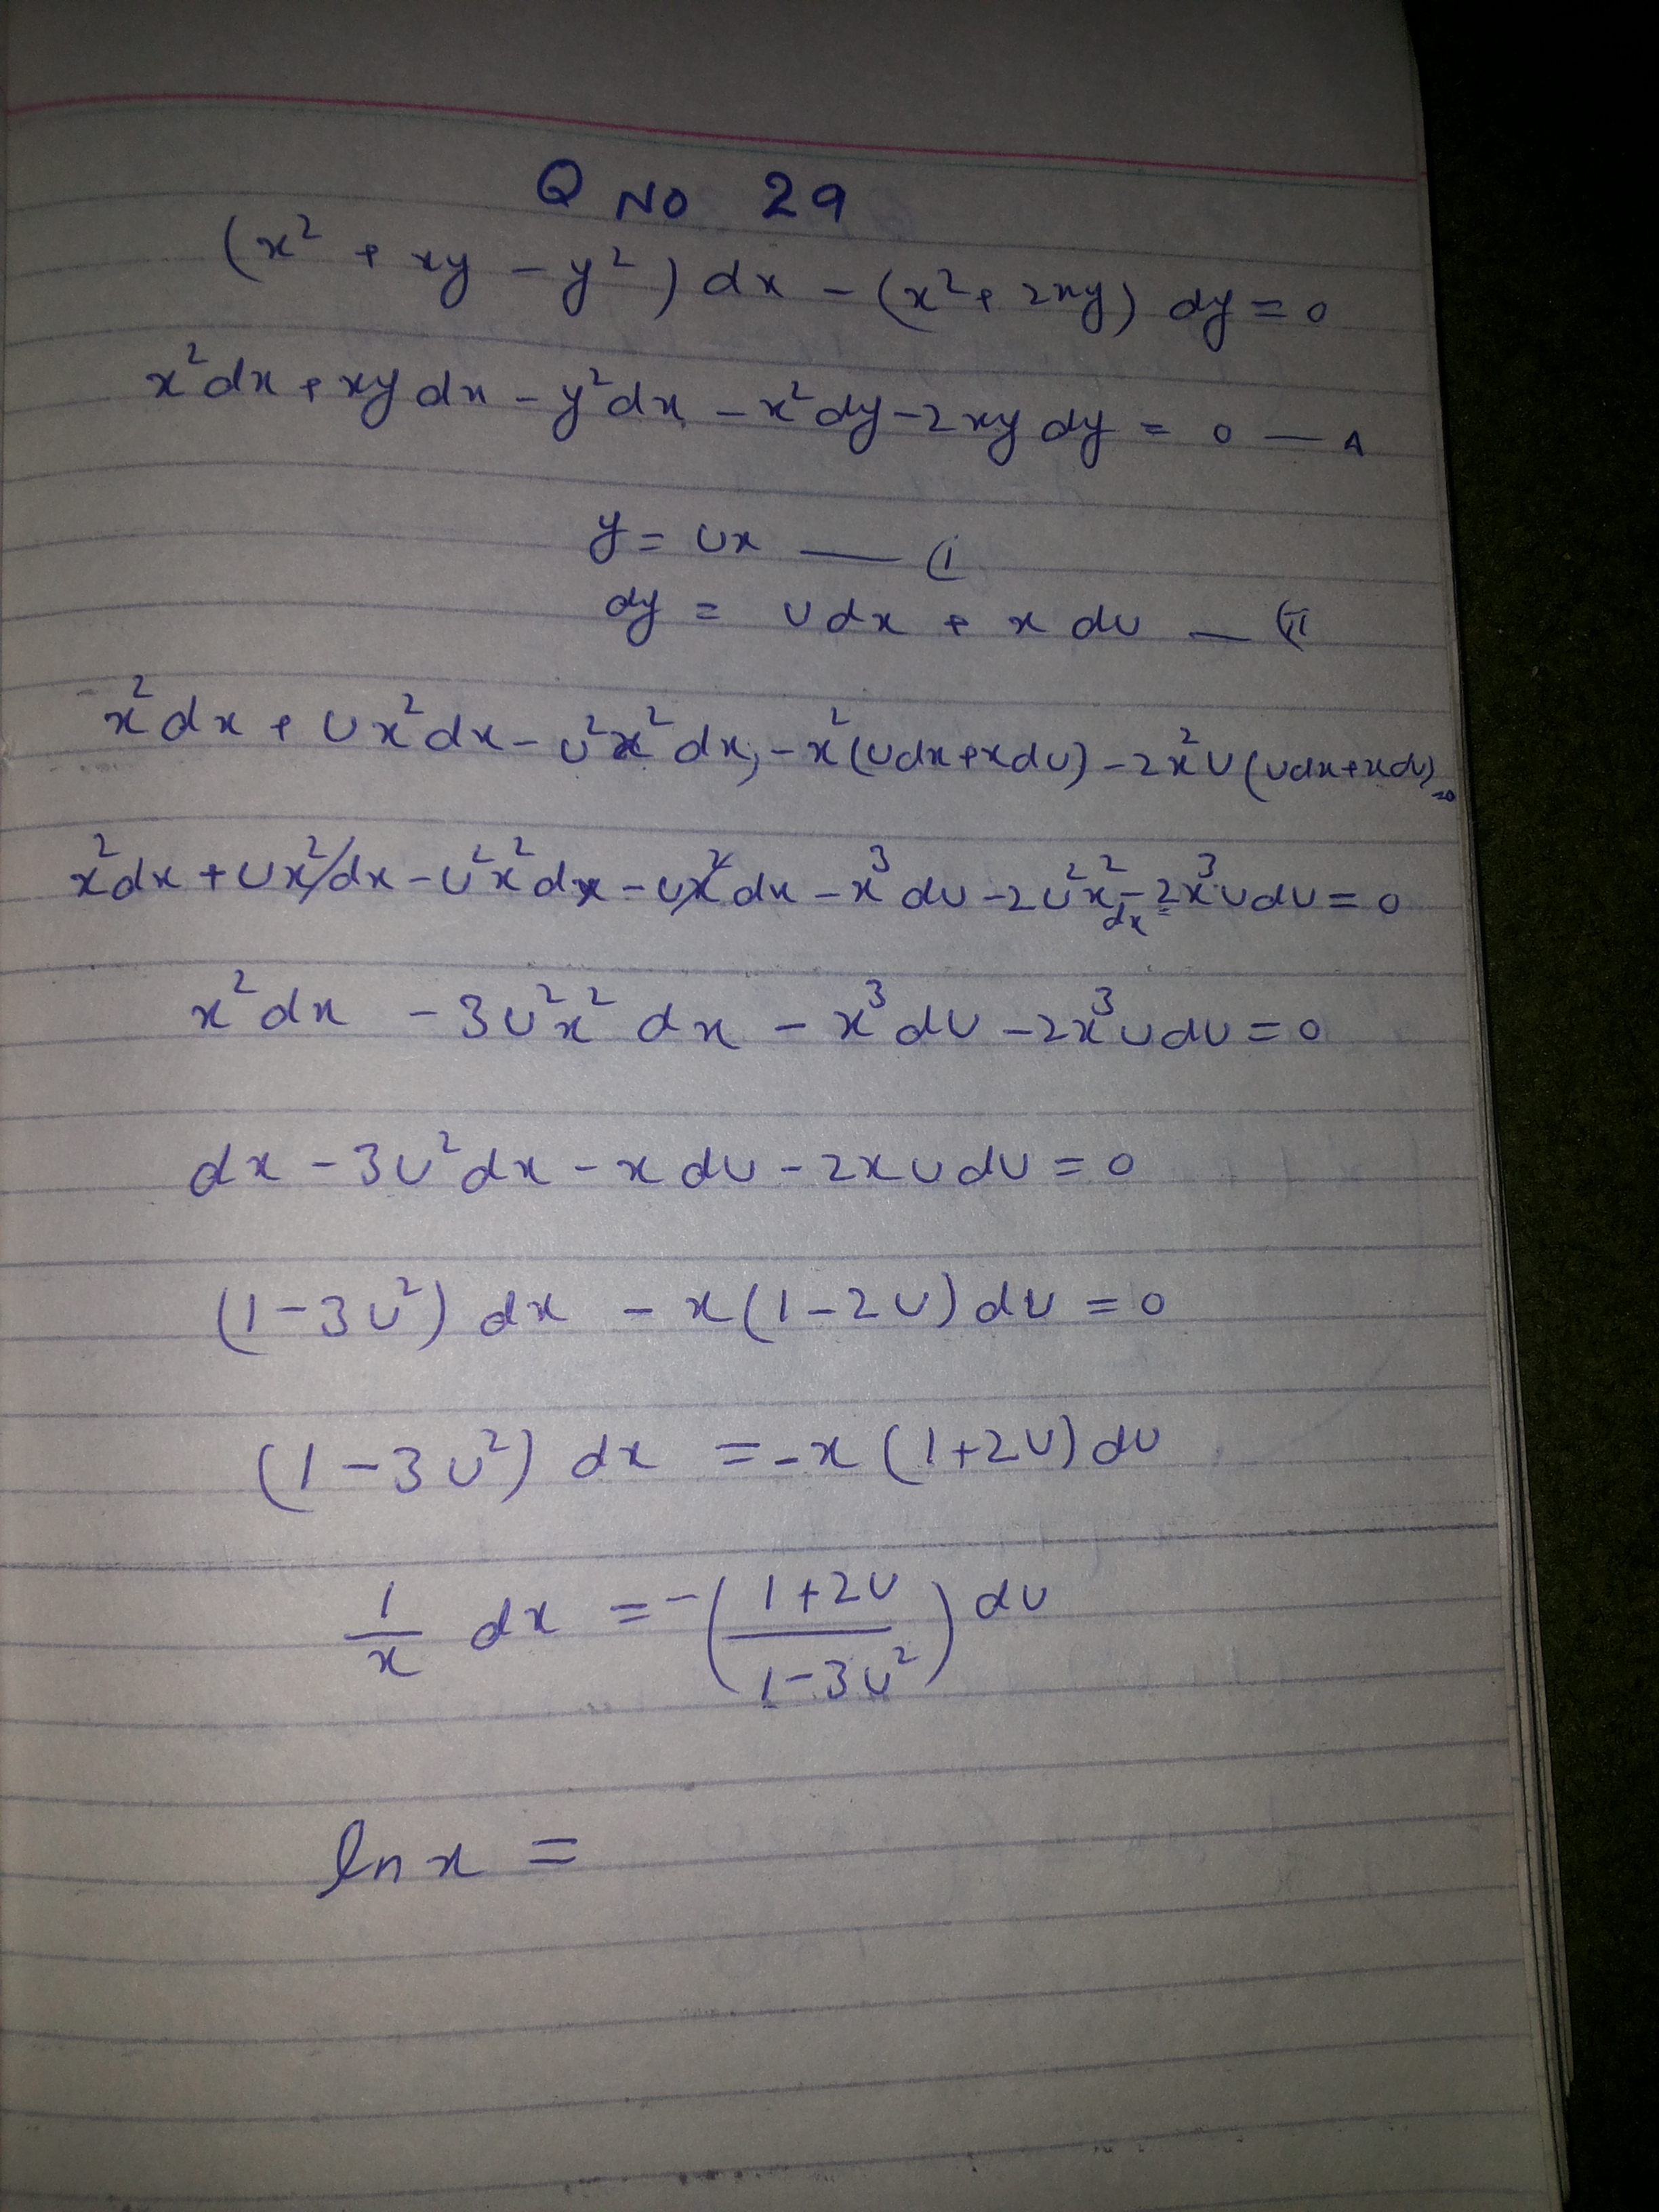 Q No 29
(x² + xy - y²) dx - (x² + 2xy) dy = 0
x²dx + xy dx - y²dx - x²dy - 2xy dy = 0 — A
y = ux — (I
dy = udx + x du — (II
x²dx + ux²dx - u²x²dx, - x²(udx+xdu) - 2x²u(udx+xdu) =0
x²dx + ux²dx - u²x²dx - ux²dx - x³du - 2u²x²dx - 2x³udu = 0
x²dx - 3u²x² dx - x³du - 2x³udu = 0
dx - 3u²dx - xdu - 2xudu = 0
(1-3u²) dx - x(1-2u)du = 0
(1-3u²) dx = -x(1+2u)du
1/x dx = -((1+2u)/(1-3u²)) du
ln x =